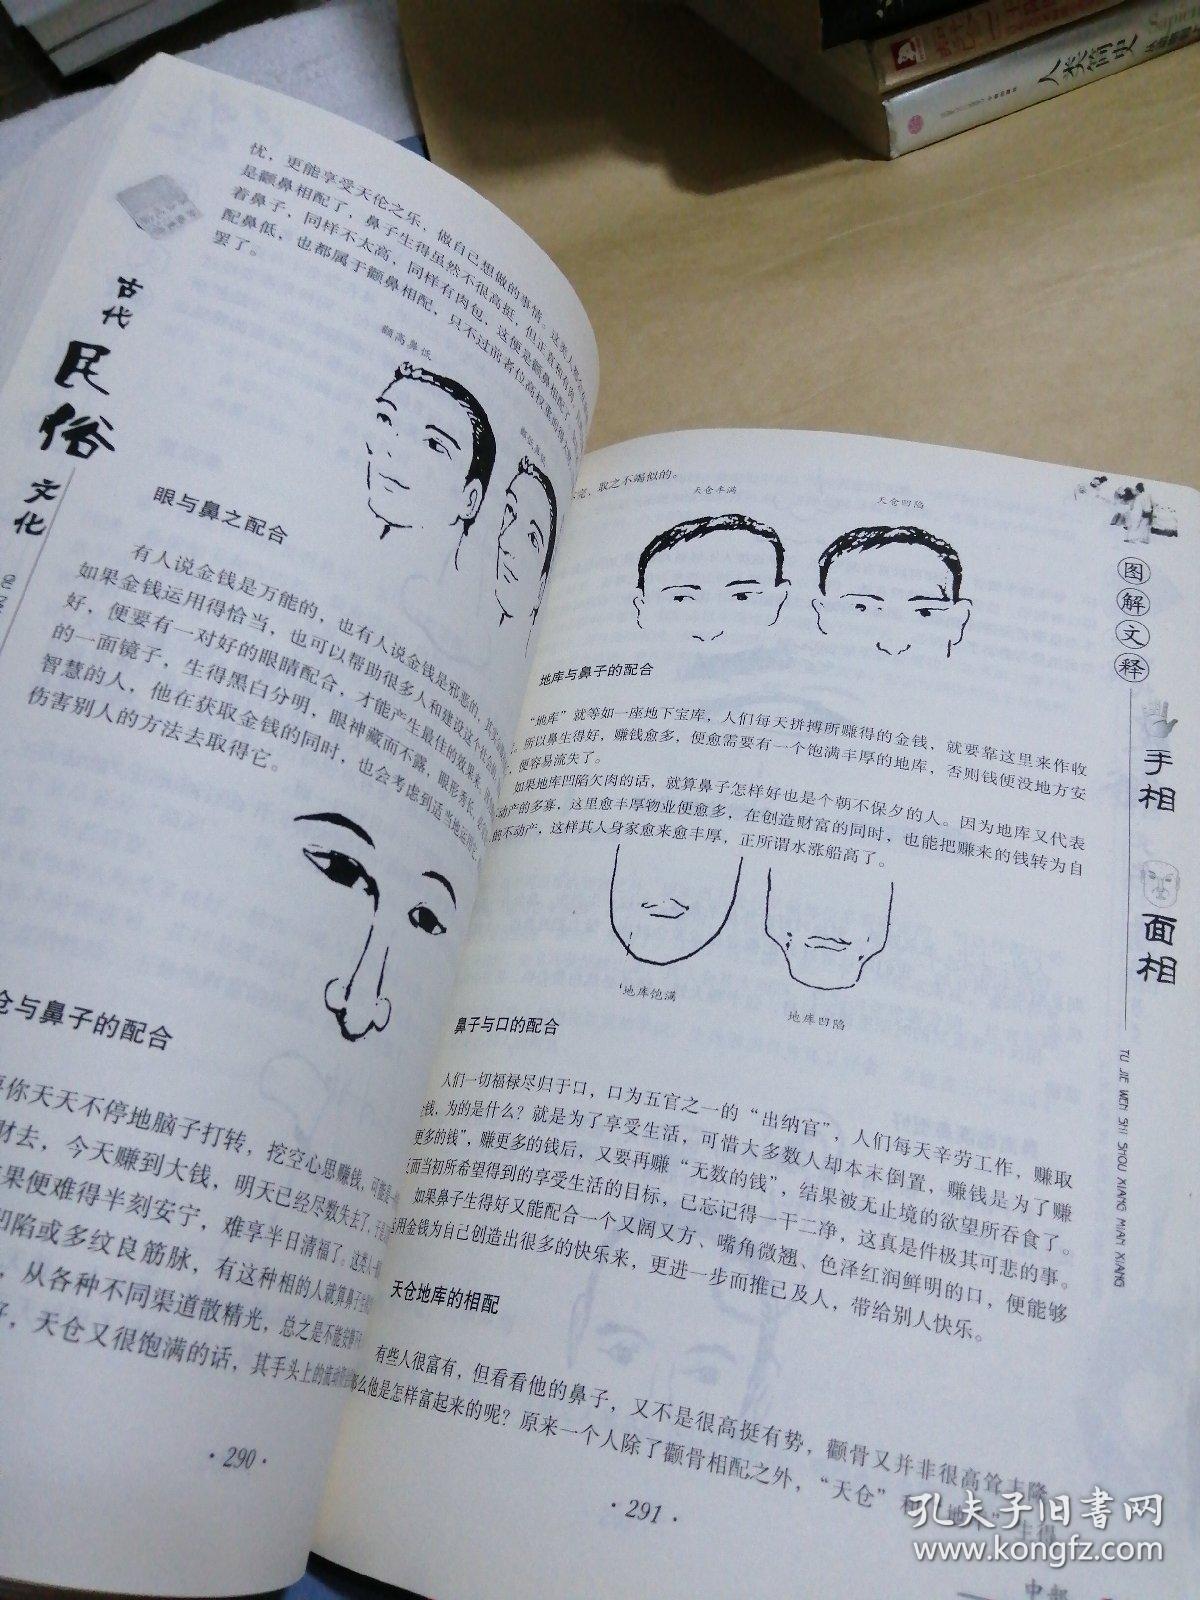 忧，更能享受天伦之乐，做自己想做的事情。这类人
是颧鼻相配了，鼻子生得虽然不很高挺，但正直和有肉
着鼻子，同样不太高，同样有肉包，这便是颧鼻相配了
配鼻低，也都属于颧鼻相配，只不过前者位高权重
罢了。
颧高鼻低
古代
民俗
文化
眼与鼻之配合
有人说金钱是万能的，也有人说金钱是邪恶的，其实
如果金钱运用得恰当，也可以帮助很多人和建设这个社会
好，便要有一对好的眼睛配合，才能产生最佳的效果来
的一面镜子，生得黑白分明，眼神藏而不露，眼形秀长
智慧的人，他在获取金钱的同时，也会考虑到适当地运用它
伤害别人的方法去取得它。
仓与鼻子的配合
你天天不停地脑子打转，挖空心思赚钱，可能是
财去，今天赚到大钱，明天已经尽数失去了，于是
果便难得半刻安宁，难享半日清福了。这类人
凹陷或多纹良筋脉，有这种相的人就算鼻子
，从各种不同渠道散精光，总之是不能安静
好，天仓又很饱满的话，其手头上的流动
·290·
完，取之不竭似的。
天仓丰满
天仓凹陷
地库与鼻子的配合
“地库”就等如一座地下宝库，人们每天拼搏所赚得的金钱，就要靠这里来作收
，所以鼻生得好，赚钱愈多，便愈需要有一个饱满丰厚的地库，否则钱便没地方安
，便容易流失了。
如果地库凹陷欠肉的话，就算鼻子怎样好也是个朝不保夕的人。因为地库又代表
动产的多寡，这里愈丰厚物业便愈多，在创造财富的同时，也能把赚来的钱转为自
的不动产，这样其人身家愈来愈丰厚，正所谓水涨船高了。
地库饱满
地库凹陷
鼻子与口的配合
人们一切福禄尽归于口，口为五官之一的“出纳官”，人们每天辛劳工作，赚取
金钱，为的是什么？就是为了享受生活，可惜大多数人却本末倒置，赚钱是为了赚
更多的钱”，赚更多的钱后，又要再赚“无数的钱”，结果被无止境的欲望所吞食了。
而当初所希望得到的享受生活的目标，已忘记得一干二净，这真是件极其可悲的事。
如果鼻子生得好又能配合一个又阔又方、嘴角微翘、色泽红润鲜明的口，便能够
运用金钱为自己创造出很多的快乐来，更进一步而推己及人，带给别人快乐。
天仓地库的相配
有些人很富有，但看看他的鼻子，又不是很高挺有势，颧骨又并非很高耸丰隆
那么他是怎样富起来的呢？原来一个人除了颧骨相配之外，“天仓”和
·291·
图解文释
手相
面相
TU JIE WEN SHI SHOU XIANG MIAN XIANG
中部
人类简史
孔夫子旧书网
www.kongfz.com